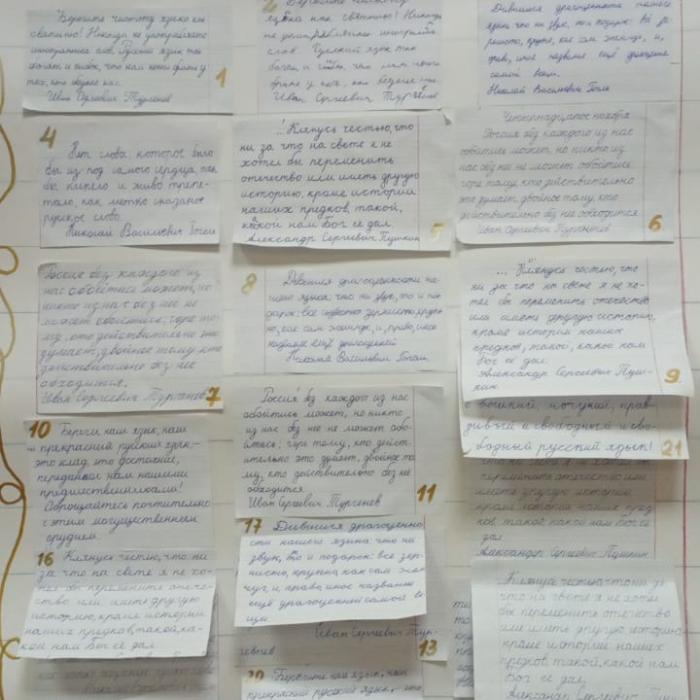 Берегите чистоту языка как
святыню! Никогда не употребляйте
иностранных слов. Русский язык так
богат и гибок, что нам нечего брать у
тех, кто беднее нас.
Иван Сергеевич Тургенев
1
2
языка как святыню! Никогда
не употребляйте иностранных
слов. Русский язык так
богат и гибок, что нам нечего
брать у тех, кто беднее нас.
Иван Сергеевич Тургенев
Дивишься драгоценности нашего
языка: что ни звук, то и подарок: всё зе-
рнисто, крупно, как сам жемчуг, и,
право, иное название ещё драгоценнее
самой вещи.
Николай Васильевич Гоголь
4
Нет слова, которое было
бы из под самого сердца, так
бы кипело и живо трепе-
тало, как метко сказанное
русское слово.
Николай Васильевич Гоголь
"Клянусь честью, что
ни за что на свете я не
хотел бы переменить
отечество или иметь другую
историю, кроме истории
наших предков, такой,
какой нам Бог её дал.
Александр Сергеевич Пушкин
5
Россия без каждого из нас
обойтись может, но никто из
нас без неё не может обойтись
горе тому, кто действительно
это думает, двойное тому, кто
действительно без неё обходится
Иван Сергеевич Тургенев
6
Россия без каждого из
нас обойтись может, но
никто из нас без нее не
может обойтись; горе то-
му, кто действительно это
думает, двойное тому, кто
действительно без неё
обходится.
Иван Сергеевич Тургенев
7
8
Дивишься драгоценности на-
шего языка: что ни звук, то и по-
дарок: все зернисто, крупно,
но, как сам жемчуг, и, право, иное
название ещё драгоценней
Николай Васильевич Гоголь
... "Клянусь честью, что
ни за что на свете я не хо-
тел бы переменить отечество
или иметь другую историю,
кроме истории наших
предков, такой, какой нам
Бог её дал.
Александр Сергеевич Пуш-
кин
9
великий, могучий, прав-
дивый и свободный и сво-
бодный русский язык!
21
10
Береги наш язык, наш
прекрасный русский язык,-
это клад, это достояние,
переданное нам нашими
предшественниками!
Обращайтесь почтительно
с этим могущественным
орудием.
Россия без каждого из нас
обойтись может, но никто
из нас без неё не может обо-
йтись; горе тому, кто дейст-
вительно это думает, двойное то-
му, кто действительно без неё
обходится
Иван Сергеевич Тургенев
11
переменить отечество
или иметь другую историю
кроме истории наших пред
ков, такой какой нам Бог её
дал.
Александр Сергеевич Пушкин
16
Клянусь честью, что ни
за что на свете я не хо-
тел бы переменить отече-
ство или иметь другую
историю, кроме истории
наших предков, такой, ка-
кой нам Бог её дал.
17
Дивишься драгоценно
сти нашего языка: что ни
звук, то и подарок: все зер-
нисто, крупно как сам жем
чуг, и, право, иное название
ещё драгоценней самой ве
щи
Иван Сергеевич Тур-
генев
13
20
Берегите наш язык, наш
прекрасный русский язык, - это
Клянусь честью, что ни за
что на свете я не хотел
бы переменить отечество
или иметь другую историю
кроме истории наших
предков, такой, какой нам
Бог её дал.
Александр Сергеевич Пуш